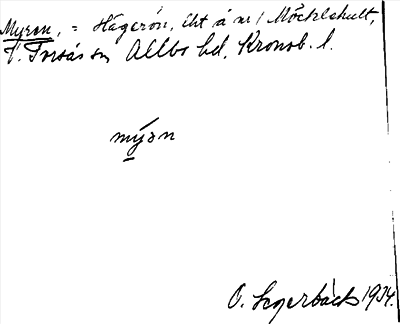 Myren, = Hägerön, lht å nr 1 Möcklehult,
V. Torsås sn Allbo hd. Kronob. l.
mýɔn
O. Segerbäck 1934.